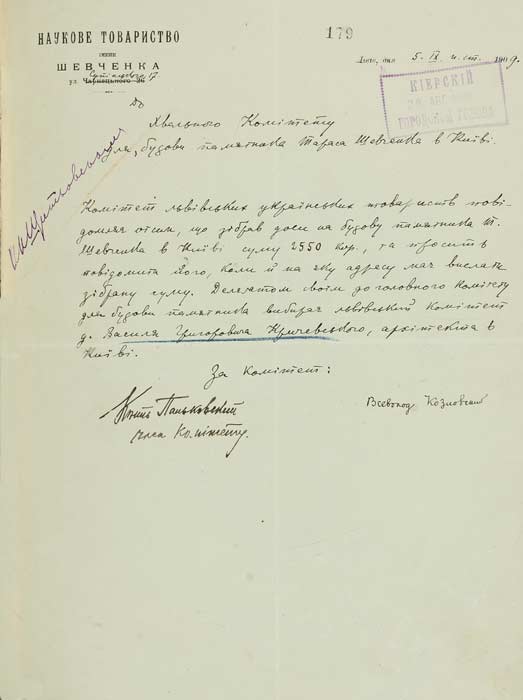 НАУКОВЕ ТОВАРИСТВО
імени
ШЕВЧЕНКА
ул. Чарнецького 26
179
Львів, дня 5. IX н. ст. 1909.
КІЕВСКІЙ
ГОРОДСКОЙ ГОЛОВА
До
Хвального Комітету
для будови памятника Тараса Шевченка в Київі.
Комітет львівських українських товариств пові-
домляє отсим, що зібрав доси на будову памятника Т.
Шевченка в Київі суму 2550 кор., та просить
повідомити його, коли й на яку адресу має вислати
зібрану суму. Делєґатом своїм до головного комітету
для будови памятника вибирає львівський комітет
д. Василя Григоровича Кричевського, архітекта в
Київі.
За комітет:
Кость Паньковский
Всеволод Козловский
член комітету.